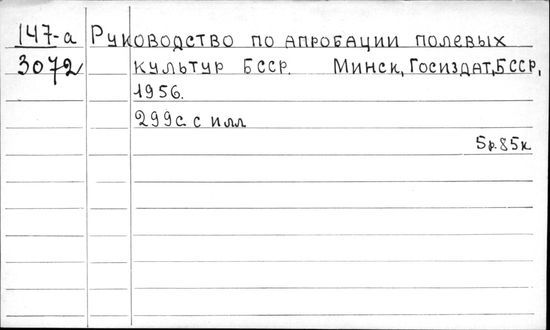 147-а Руководство по апробации полевых
3072 культур БССР. Минск, Госиздат, БССР,
1956.
299с. с илл
5р.85к.